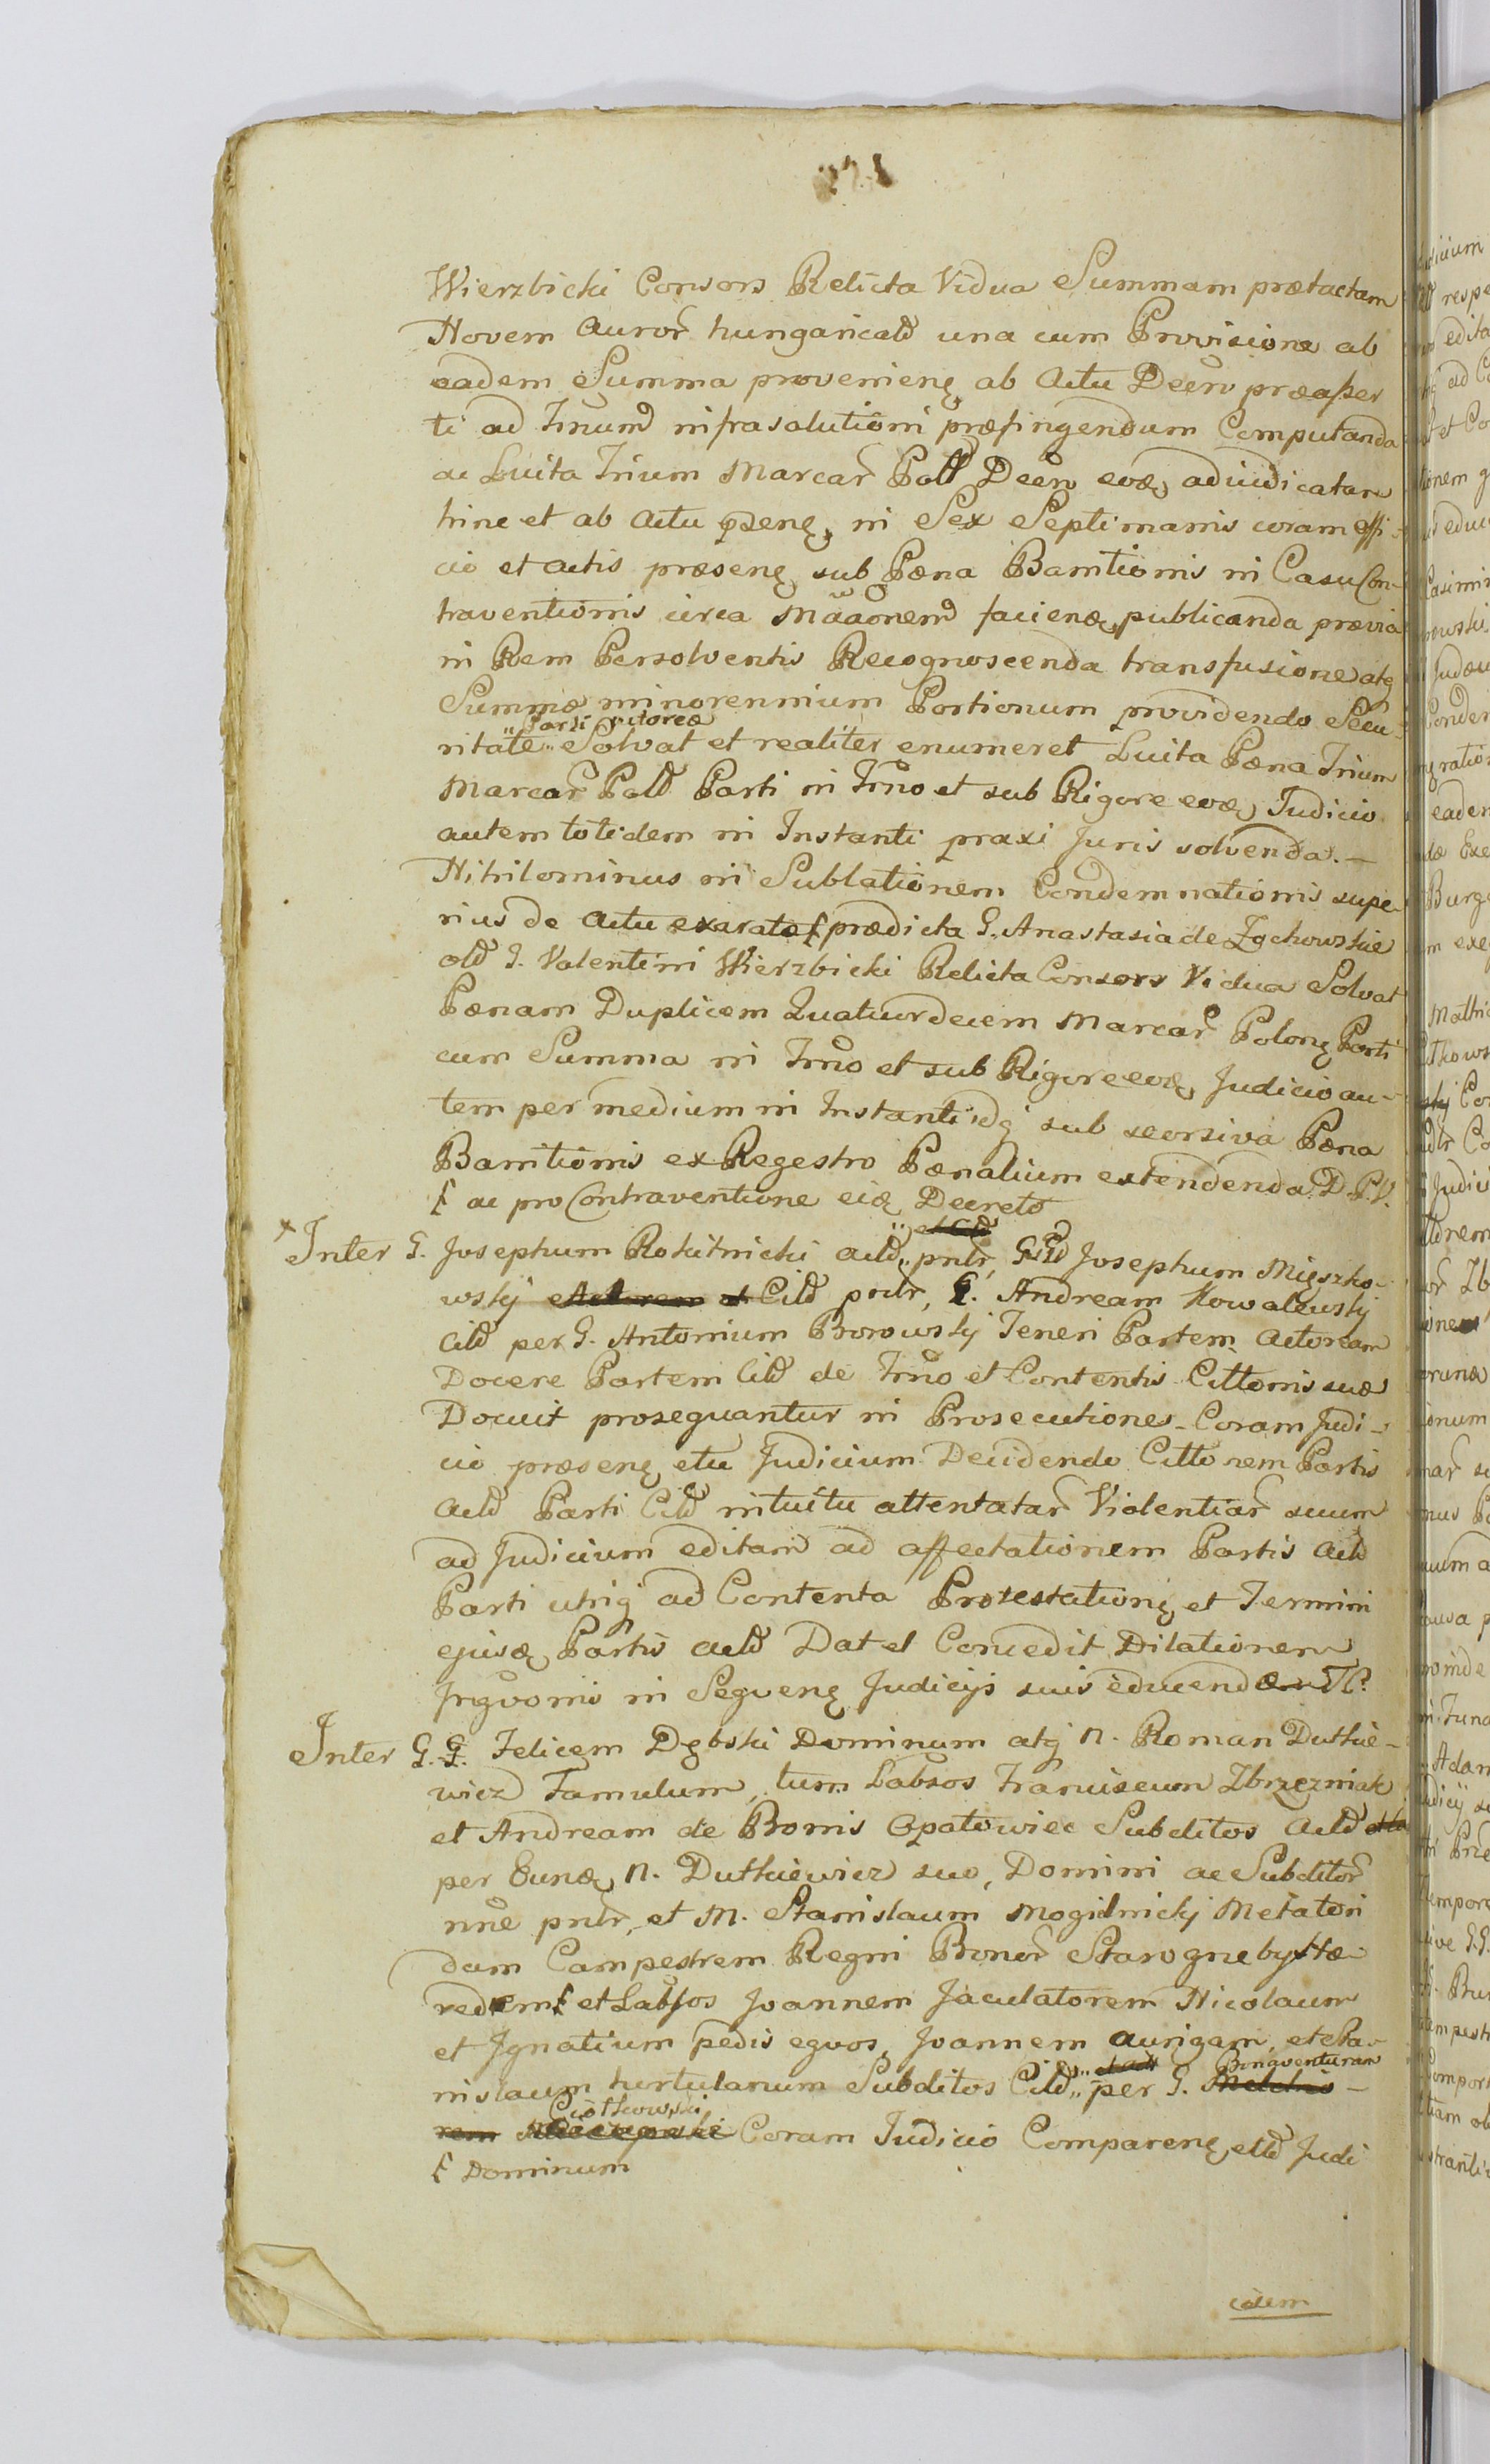 Wierzbicki Consors Relicta Vidua Summam prætactam
Novem auror hungaricalõ una cum Provisione ab
eadem Summa provenienę ab actu Decrõ præasser
ti ad Trnum infrasolutioni præfingendum Computanda
ac Luita Trium Marcar Poll Decro adiudicatar
hinc et ab actu psenę in Sex Septimanis coram offi-
cio et actis præsenę sub Pæna Banitionis in Casu Con-
traventionis circa publicanda prævia
in Rem Persolventis Recognoscenda transfusione atq
Summæ minorennium Portionum providendo Secu-
"Parti Actoreæ
ritate " Solvat et realiter enumeret Luita Pæna Trium
Marcar Poll Parti in Trno et sub Rigore eoæ Judicio
autem totidem in Instanti praxi Juris solvenda. —
Nihilominus in Sublationem Condemnationis supe-
rius de actu exaratæ prædicta G. Anastasia de Zochowskie
olõ G. Valentini Wierzbicki Relicta Consors Vidua Solvat
Pænam Duplicem Quatuordecem Marcar Polonę Parti
cum Summa in Trno et sub Rigore eoæ Judicio au-
tem per medium in Instanti idq sub seorsiva Pæna
Banitionis ex Regestro Pænalium extendenda. D.P.V.
ac pro Contraventione eiæ Decreto
Inter G. Josephum Rokitnicki actõ " pntr, Josephum Mięszko-
wskj Actorem et Citõ pntr, G. Andream Kowalewskj
Citõ per G. Antonium Borowskj Teneri Partem Actoream
Docere Partem Citõ de Trno et Contentis Cittonis suæ
Docuit prosequantur in Prosecutiones - Coram Judi-
cio præsenę ettu Judicium Decidendo Cittonem Partis
actõ Parti Citõ intuitu attentatar Violentiar suum
ad Judicium editam ad affectationem Partis actõ
Parti utriq ad Contenta Protestationę et Termini
ejusæ Partis actõ Dat et Concedit Dilationem
Inqvonis in Seqvenę Judicijs suis educend
Inter G.G. Felicem Dębski Dominum atq N. Roman Dutkie-
wicz Famulum, tum Labsos Franciscum Zbrzezniak
et Andream de Bonis Opatowiec Subditos actõ
per Eunæ N. Dutkiewicz suo, Domini ac Subditor
nne pntr, et M. Stanislaum Mogilnickj Metatori
dum Campestrem Regni Bonor Starogrzeby Hæ
redem et Labsos Joannem Jaculatorem Nicolaum
et Ignatium pedis eqvos, Joannem aurigam, et Sta-
Bonaventuram
nislaum hortulanum Subditos Citõ " per G. Melchio-
Ciołkowski
rem Coram Judicio Comparenę ettõ Judi
Dominum
cium